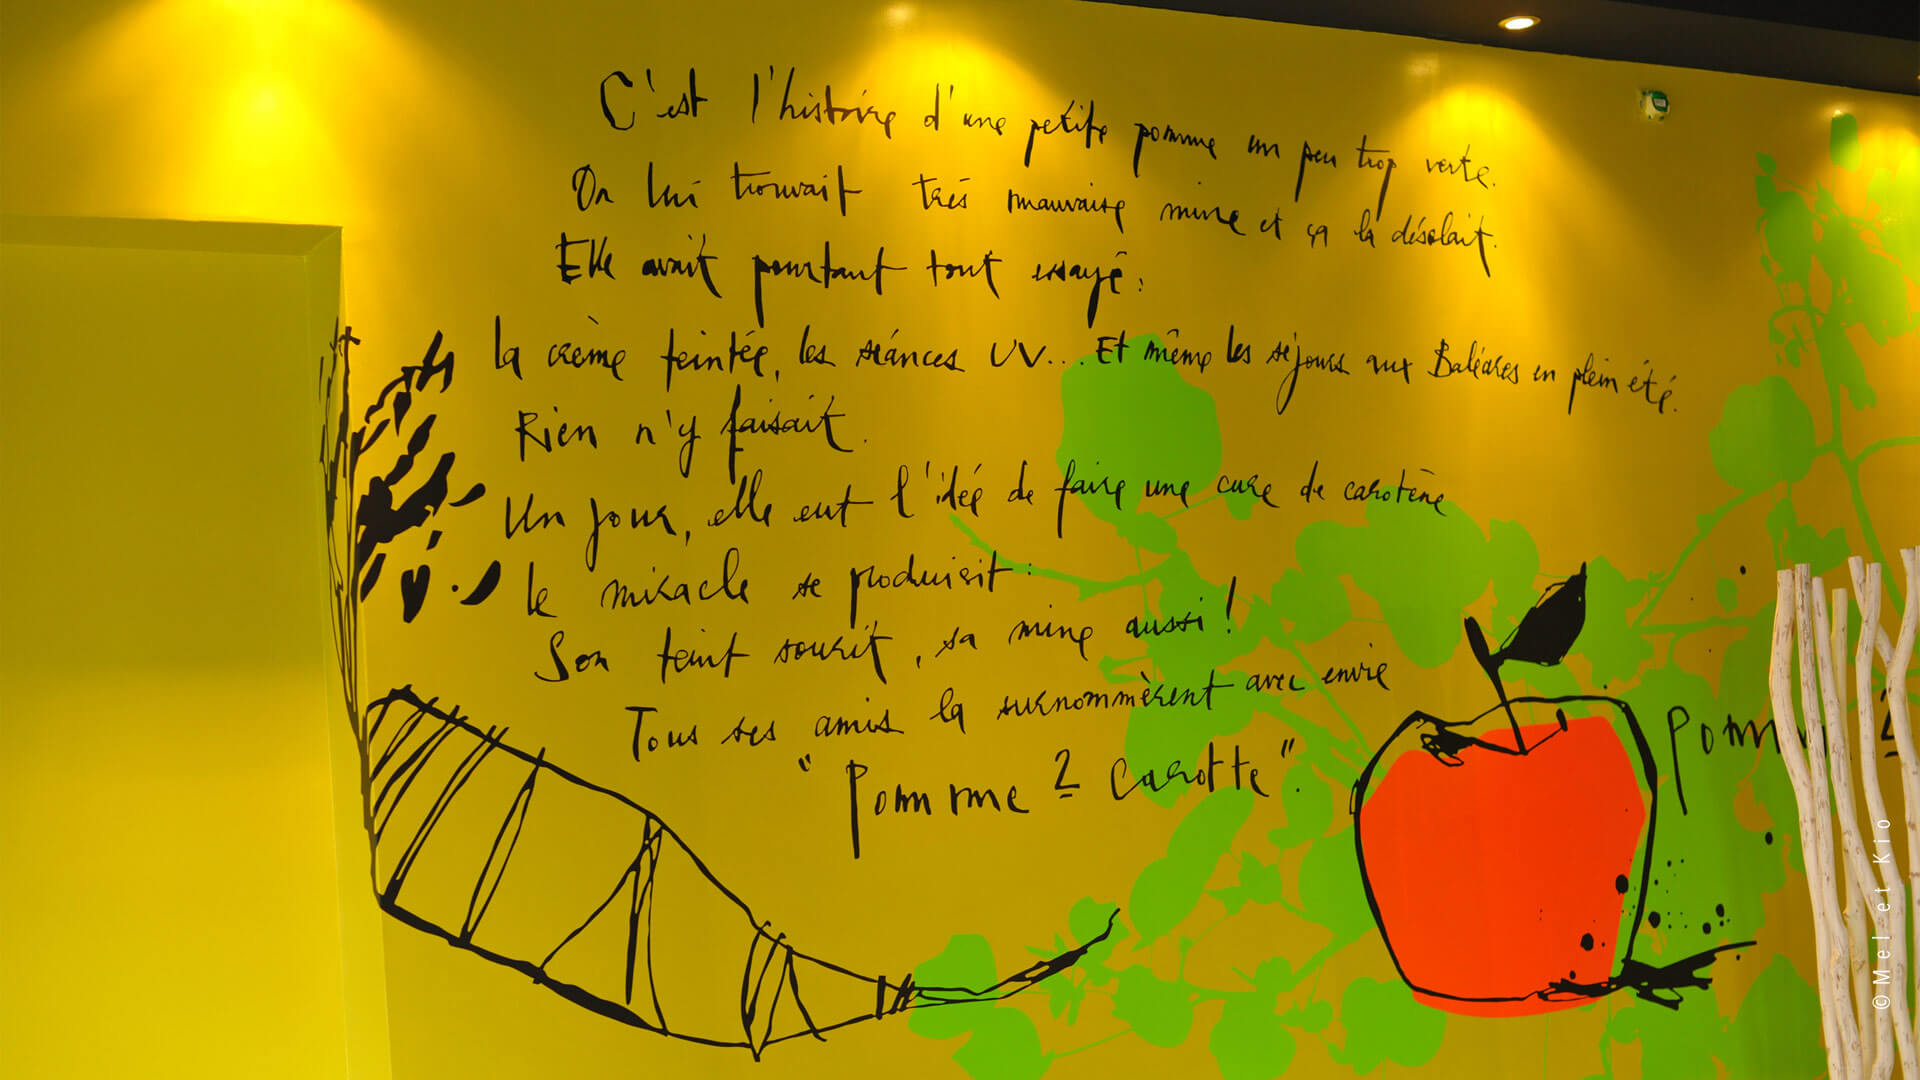 C'est l'histoire d'une petite pomme un peu trop verte.
On lui trouvait très mauvaise mine et ça la désolait.
Elle avait pourtant tout essayé :
la crème teintée, les séances UV... Et même les séjours aux Baléares en plein été.
Rien n'y faisait.
Un jour, elle eut l'idée de faire une cure de carotène
le miracle se produisit :
Son teint sourit, sa mine aussi !
Tous ses amis la surnommèrent avec envie
"Pomme 2 Carotte".
Pomm 2
© Mel et Kio